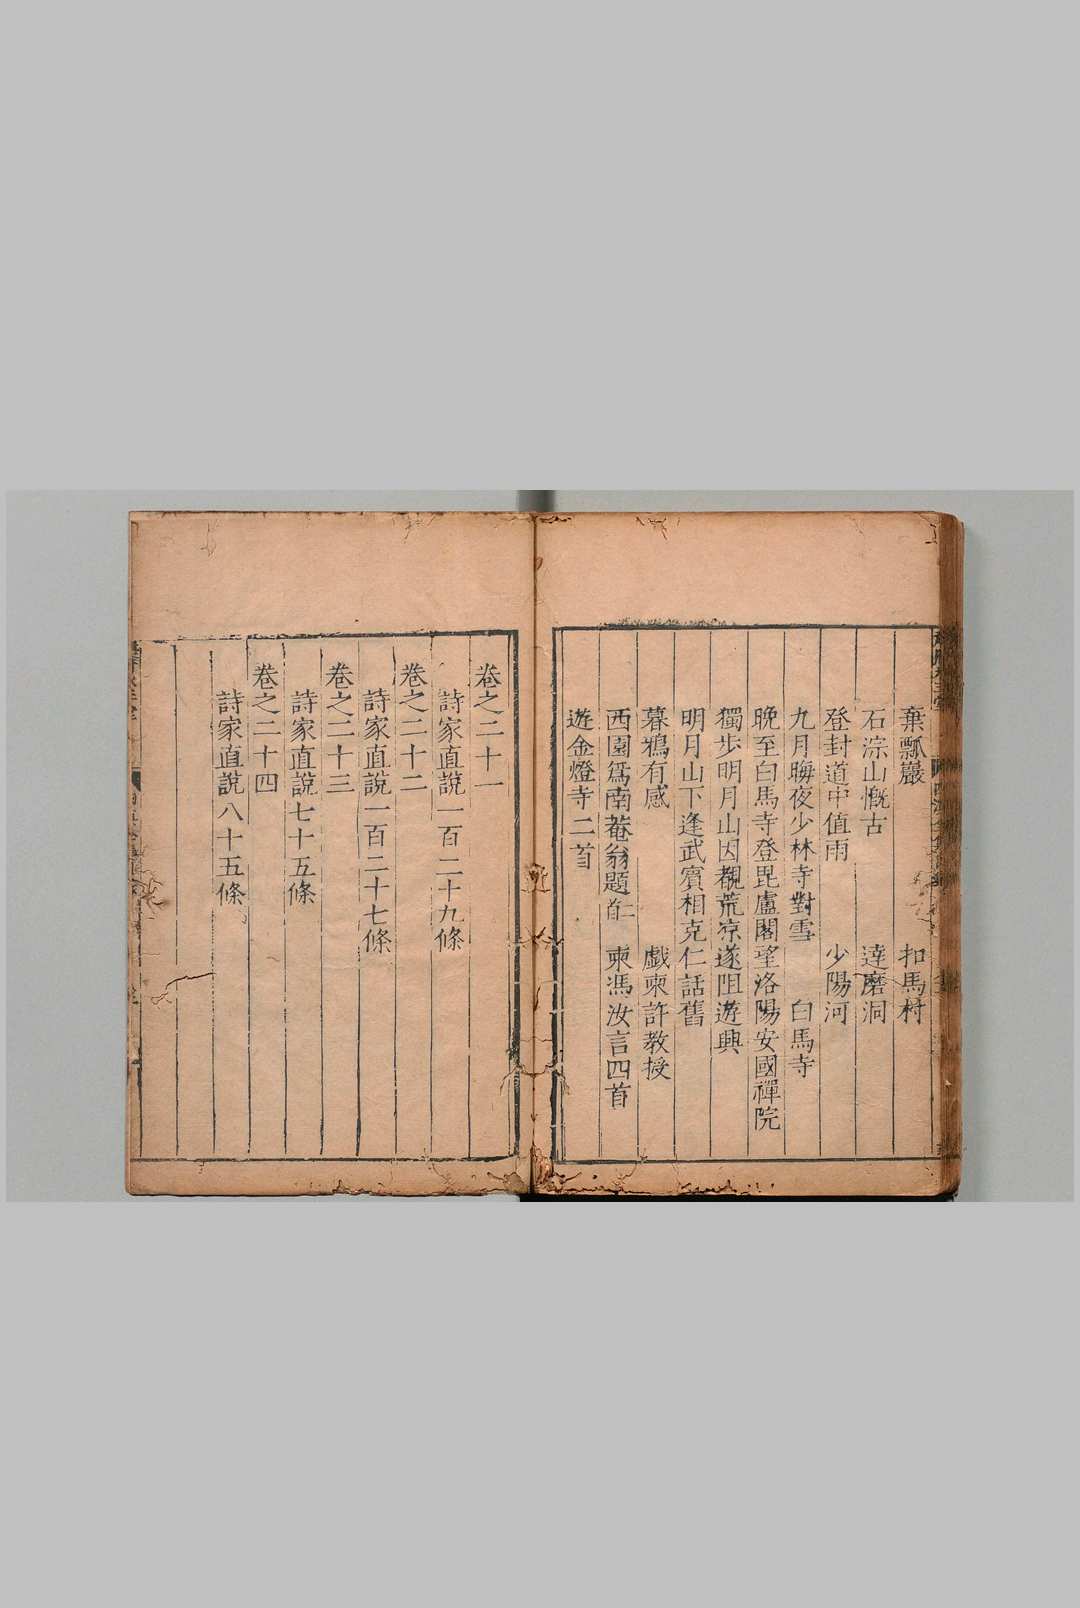 棄瓢巖　扣馬村
石淙山慨古　達磨洞
登封道中值雨　少陽河
九月晦夜少林寺對雪　白馬寺
晚至白馬寺登毘盧閣望洛陽安國禪院
獨步明月山因觀荒凉遂阻遊興
明月山下逢武賓相克仁話舊
暮鴉有感　戲柬許教授
西園爲南菴翁題二首　柬馮汝言四首
遊金燈寺二首
卷之二十一
詩家直說一百二十九條
卷之二十二
詩家直說一百二十七條
卷之二十三
詩家直說七十五條
卷之二十四
詩家直說八十五條